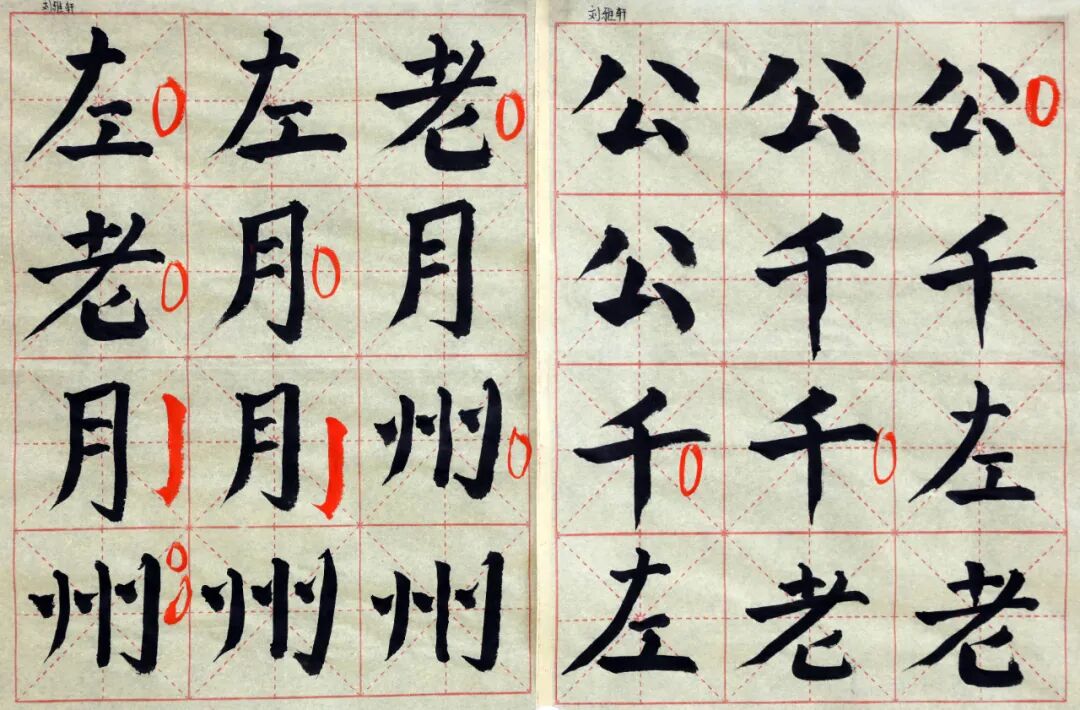 刘雅轩
左左老
老月月
月月州
州州州
刘雅轩
公公公
公千千
千千左
左老老